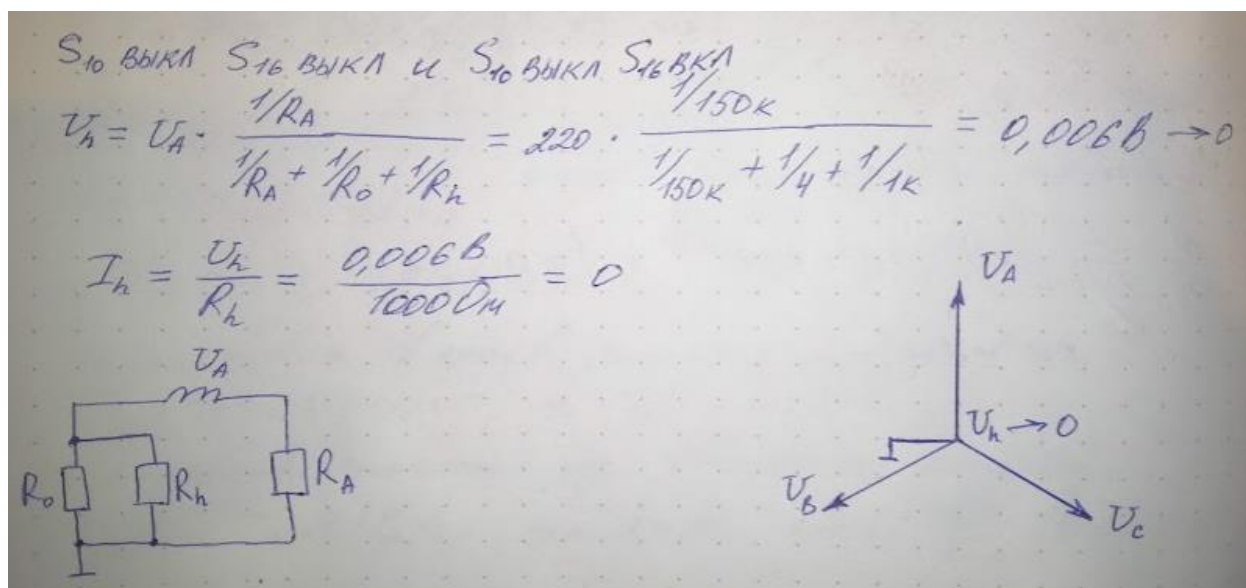 S₁₀ выкл S₁₆ выкл и S₁₀ выкл S₁₆ вкл
U_h = U_A · (1/R_A) / (1/R_A + 1/R_0 + 1/R_h) = 220 · (1/150к) / (1/150к + 1/4 + 1/1к) = 0,006В → 0
I_h = U_h / R_h = 0,006В / 1000 Ом = 0
U_A
R_0
R_h
R_A
U_A
U_h → 0
U_B
U_c